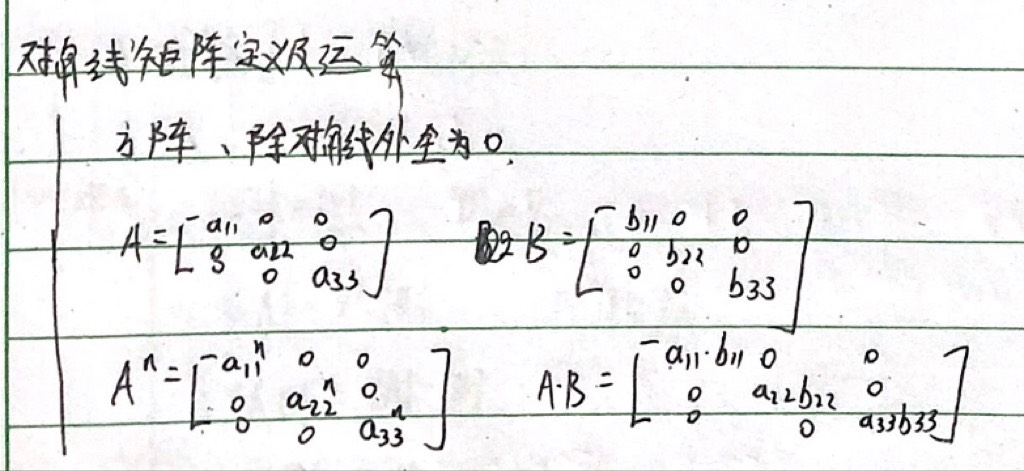 对角线矩阵定义及运算
方阵、除对角线外全为0.
A = [ a11 0 0
0 a22 0
0 0 a33 ]
B = [ b11 0 0
0 b22 0
0 0 b33 ]
A^n = [ a11^n 0 0
0 a22^n 0
0 0 a33^n ]
A·B = [ a11·b11 0 0
0 a22b22 0
0 0 a33b33 ]